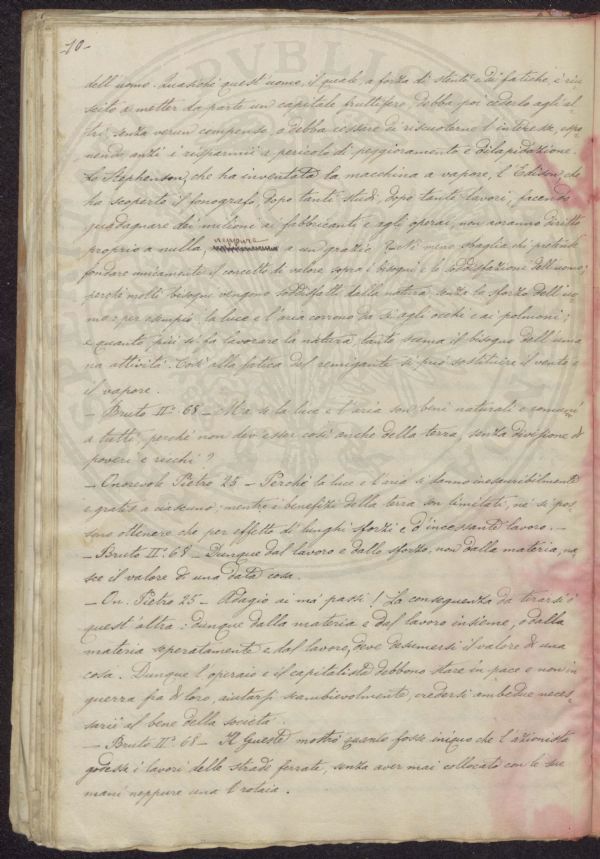 10-
dell'uomo. Quasichè quest'uomo, il quale, a forza di stenti e di fatiche, è riu-
scito a metter da parte un capitale fruttifero, debba poi cederlo agli al-
tri, senza verun compenso, o debba cessare di riscuoterne l'interesse, espo-
nendo, anzi i risparmii a pericolo di peggioramento e dilapidazione.
Lo Stephenson, che ha inventato la macchina a vapore, l'Edison, che
ha scoperto il fonografo, dopo tanti studi, dopo tanti lavori, facendo
guadagnare dei milioni ai fabbricanti e agli operai, non avranno diritto
proprio a nulla, neppure a un grazie. Nè meno sbaglia chi pretende
fondare unicamente il concetto di valore sopra i bisogni e la soddisfazione dell'uomo;
perchè molti bisogni vengono soddisfatti dalla natura, senza lo sforzo dell'uo-
mo: per esempio la luce e l'aria corrono da sè agli occhi e ai polmoni;
e quanto più si fa lavorare la natura, tanto scema il bisogno dell'uma
na attività. Così alla fatica del remigante si può sostituire il vento e
il vapore.
- Bruto IIº. 68 - Ma se la luce e l'aria son beni naturali e comuni
a tutti, perchè non dev'esser così anche della terra, senza divisione di
poveri e ricchi?
- Onorevole Pietro 25 - Perchè la luce e l'aria si danno inesauribilmente
e gratis a ciascuno; mentre i benefizi della terra son limitati, nè si pos-
sono ottenere che per effetto di lunghi sforzi e d'incessante lavoro. -
- Bruto IIº. 68 - Dunque dal lavoro e dallo sforzo, non dalla materia, na
sce il valore di una data cosa.
- On. Pietro 25 - Adagio ai ma' passi! La conseguenza da tirarsi è
quest'altra: dunque dalla materia e dal lavoro insieme, o dalla
materia separatamente e dal lavoro, deve desumersi il valore di una
cosa. Dunque l'operaio e il capitalista debbono stare in pace e non in
guerra fra di loro, aiutarsi scambievolmente, credersi ambedue neces-
sarii al bene della società.
- Bruto IIº. 68 - Il Guesde mostrò quanto fosse iniquo che l'azionista
godesse i lavori delle strade ferrate, senza aver mai collocato con le sue
mani neppure una rotaia.